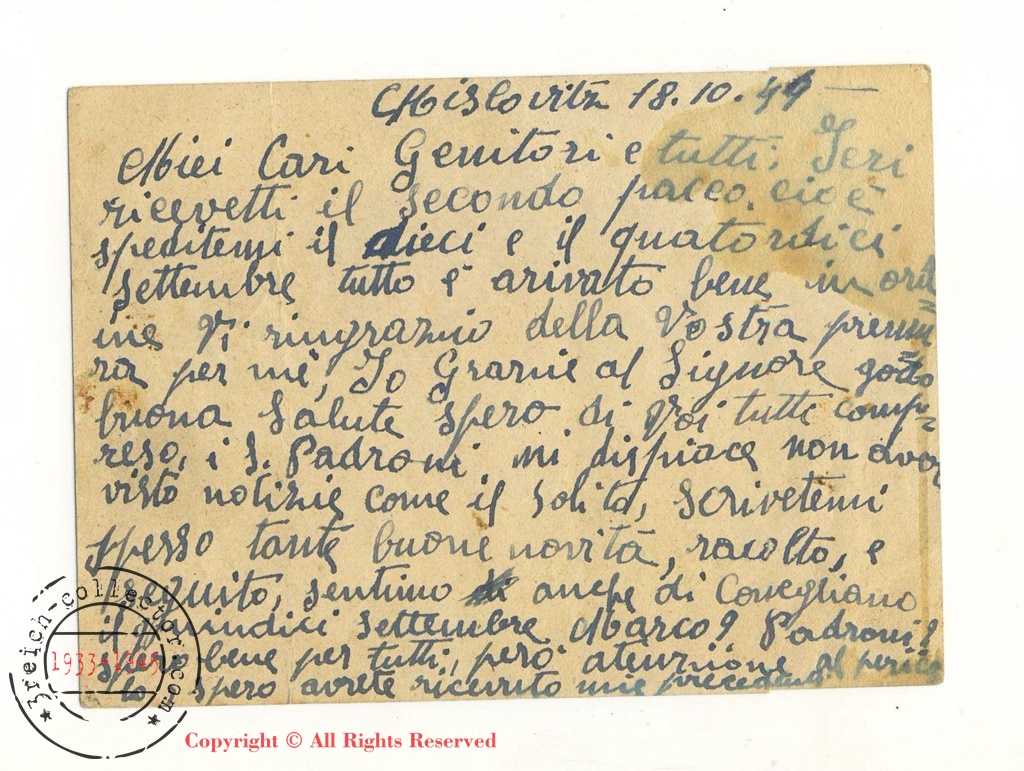 Mislovitz 18.10.44 —
Miei Cari Genitori e tutti; Ieri
ricevetti il secondo pacco, cioè
speditemi il dieci e il quatordici
settembre tutto è arivato bene in ord=
ine Vi ringrazio della Vostra premu=
ra per me, Io Grazie al Signore godo
buona salute spero di Voi tutti comp=
reso, i S. Padroni, mi dispiace non aver
visto notizie come il solito, scrivetemi
spesso tante buone novità, racolto, e
sentimo di anche di Conegliano
il quindici settembre Marco? Padroni?
spero bene per tutti, però atenzione al perico
lo spero avrete ricevuto mie precedenti
3reich-collector.com
1933-1945
Copyright © All Rights Reserved